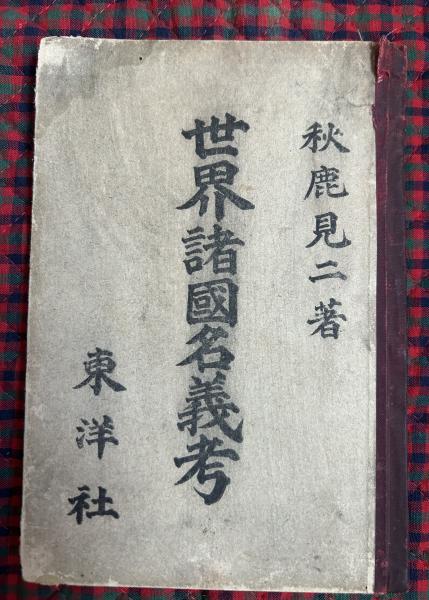 秋鹿見二著
世界諸國名義考
東洋社